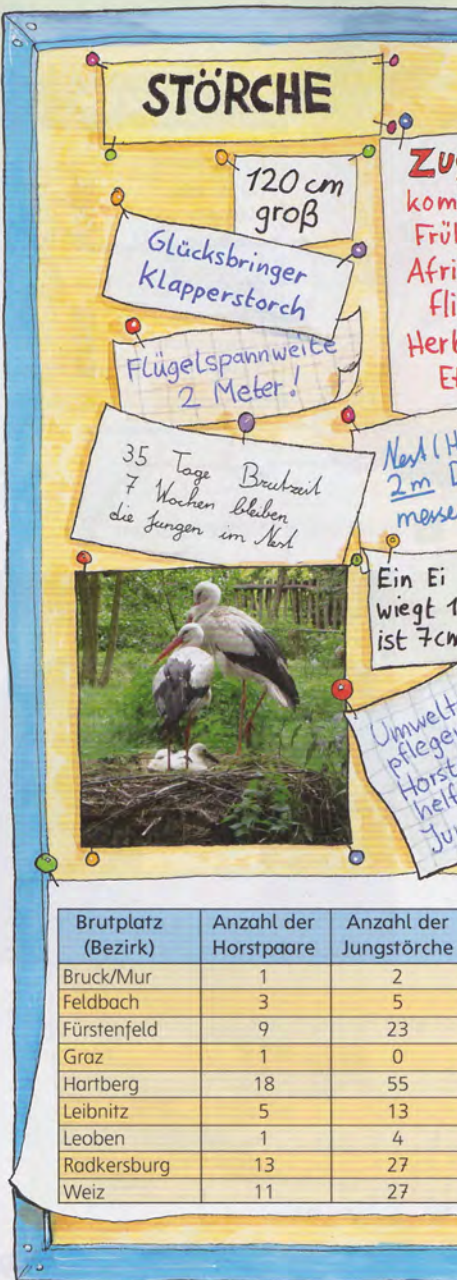 STÖRCHE
120 cm
groß
Glücksbringer
Klapperstorch
Flügelspannweite
2 Meter!
35 Tage Brutzeit
7 Wochen bleiben
die Jungen im Nest
2m
Ein Ei
wiegt
ist 7cm
Brutplatz (Bezirk) Anzahl der Horstpaare Anzahl der Jungstörche
Bruck/Mur 1 2
Feldbach 3 5
Fürstenfeld 9 23
Graz 1 0
Hartberg 18 55
Leibnitz 5 13
Leoben 1 4
Radkersburg 13 27
Weiz 11 27